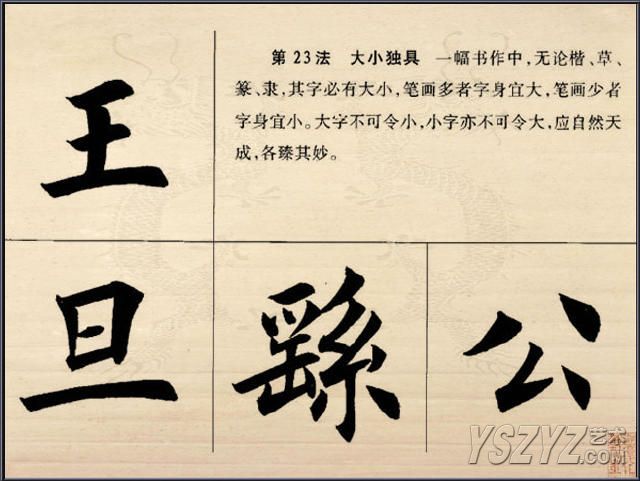 王
第23法　大小独具　一幅书作中，无论楷、草、
篆、隶，其字必有大小，笔画多者字身宜大，笔画少者
字身宜小。大字不可令小，小字亦不可令大，应自然天
成，各臻其妙。
旦 繇 公
YSZYZ艺术.COM